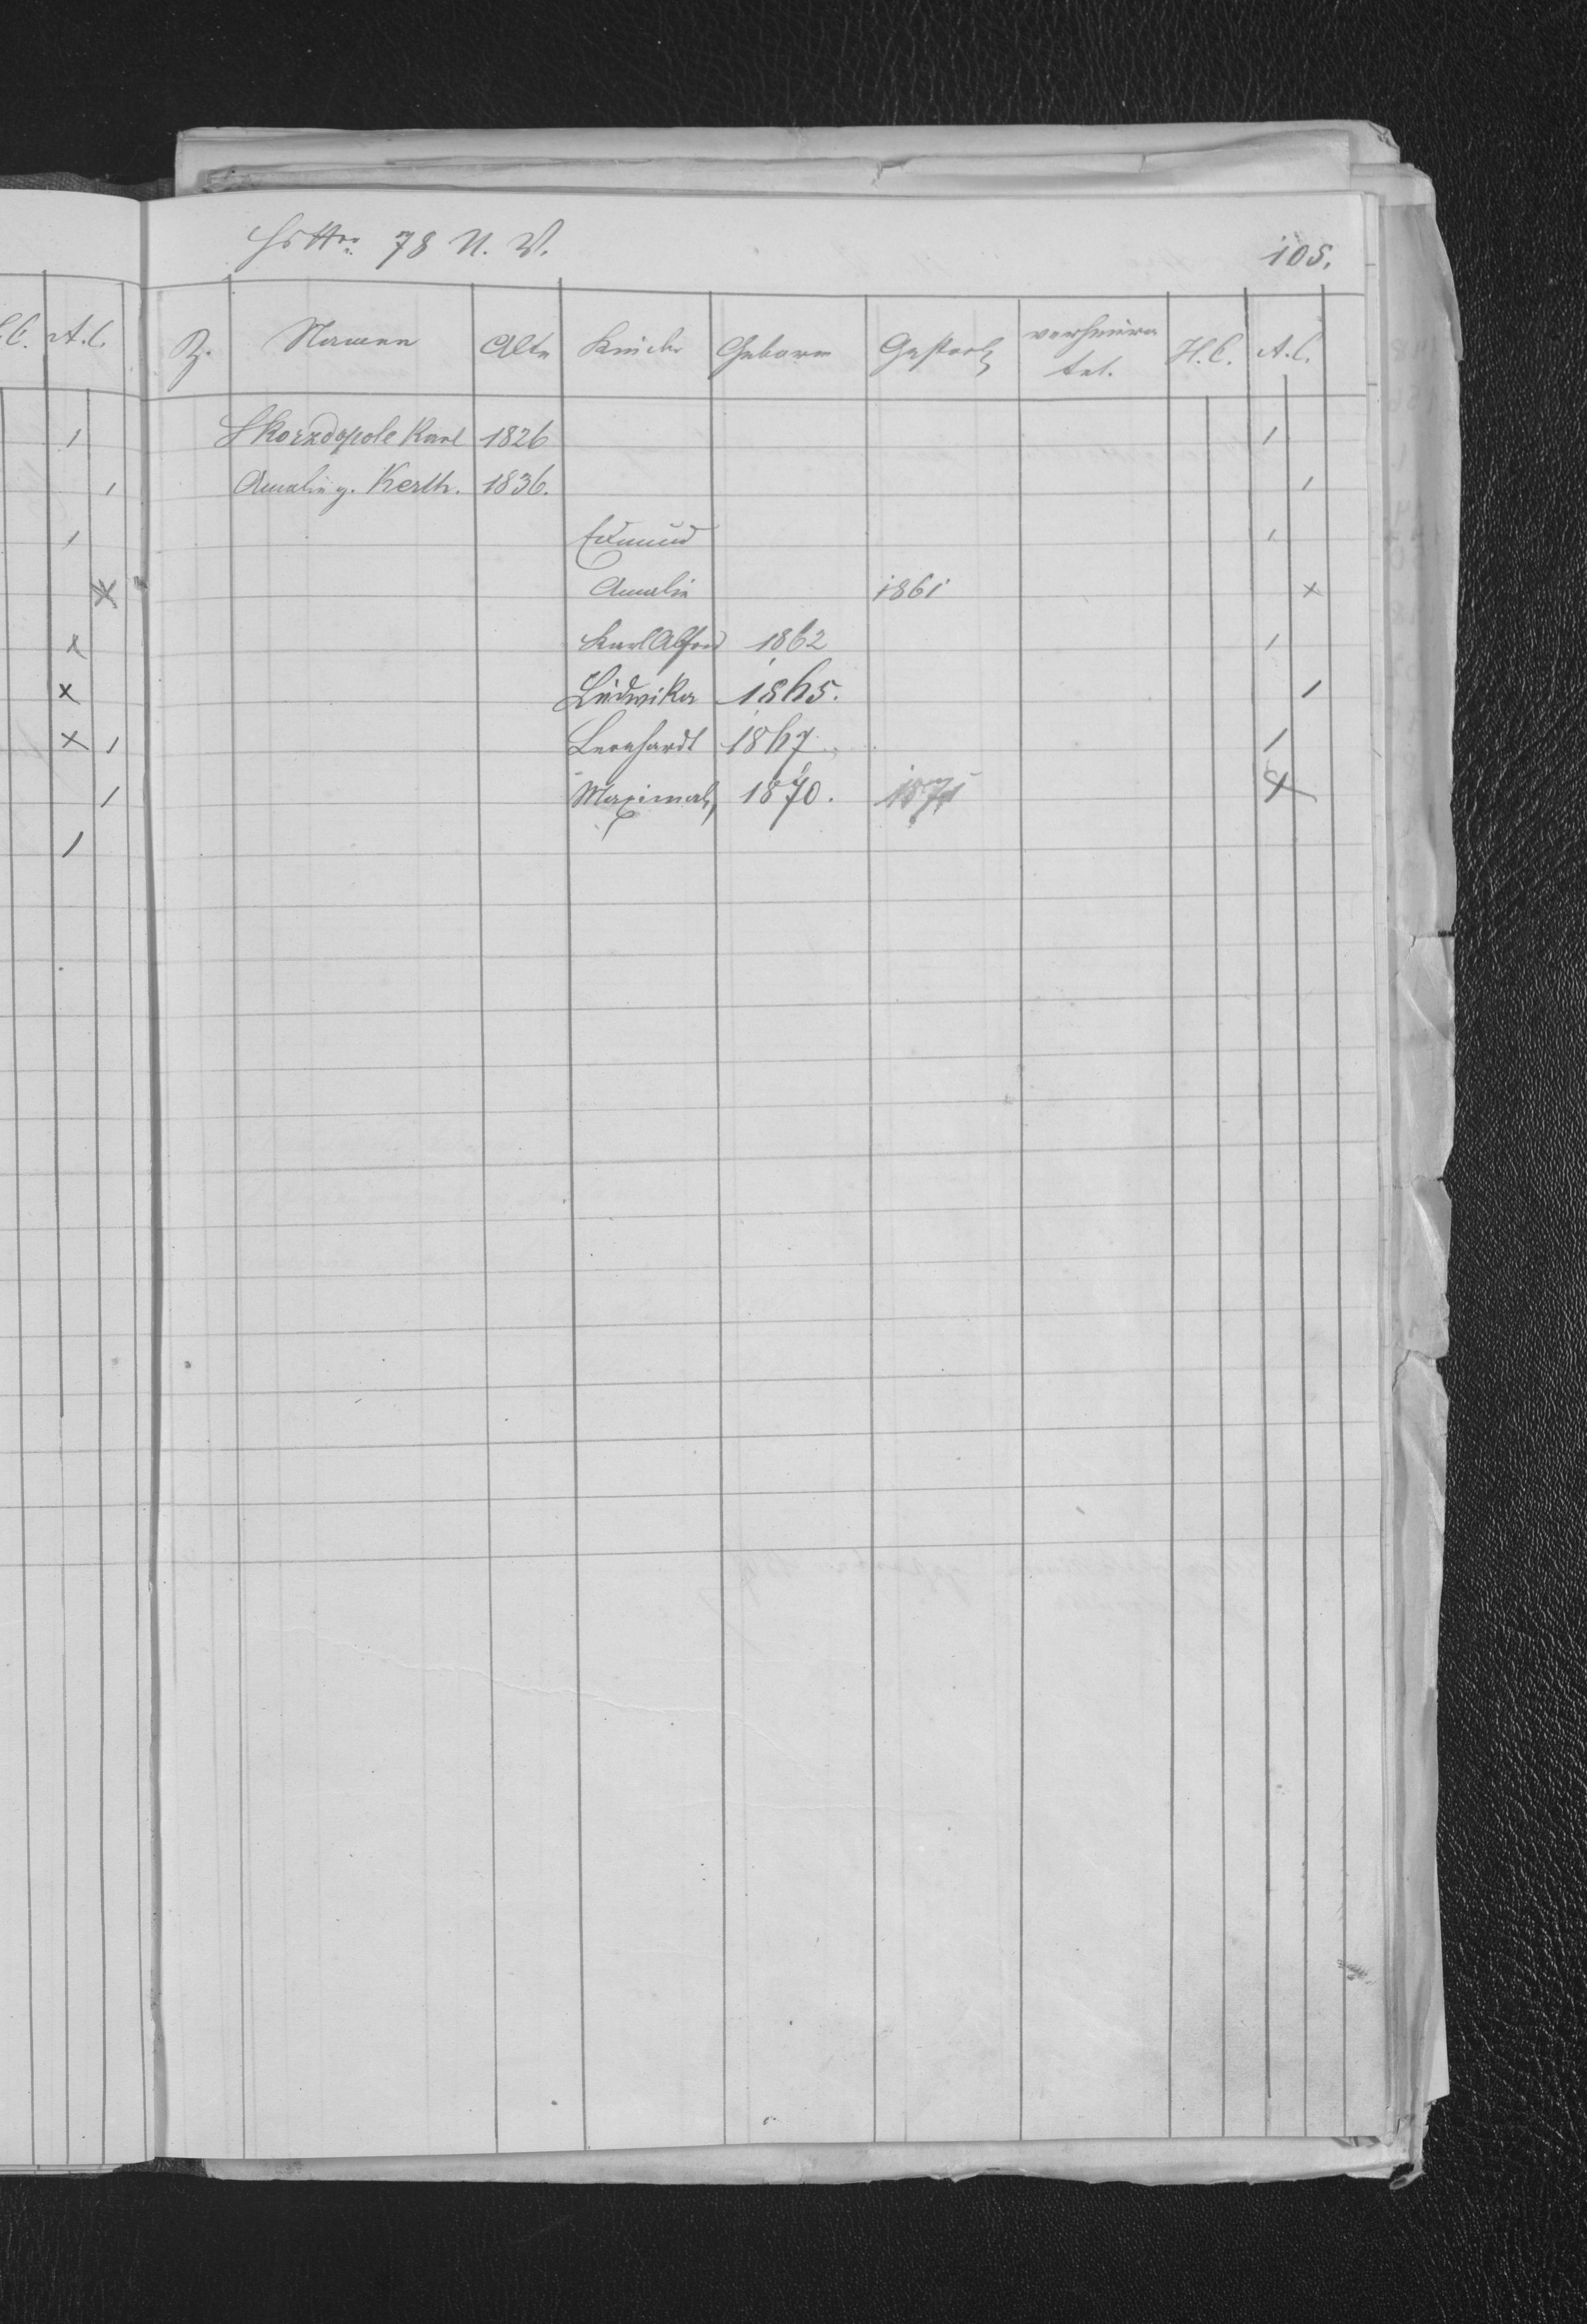 Hs Nro 78 N. W.
105.
Z. Namen Alte Kinder Geboren Gestorb verheira tet. H.C. A.C.
Skorzdopole Karl 1826 1
Amalia g. Kerth. 1836. 1
Edmund 1
Amalia 1861 x
Karl Alfred 1862 1
Ludwika 1865. 1
Leonhardt 1867. 1
Maximal, 1870. 1871 x
C. A.C.
1
1
1
x
x
x
x 1
1
1